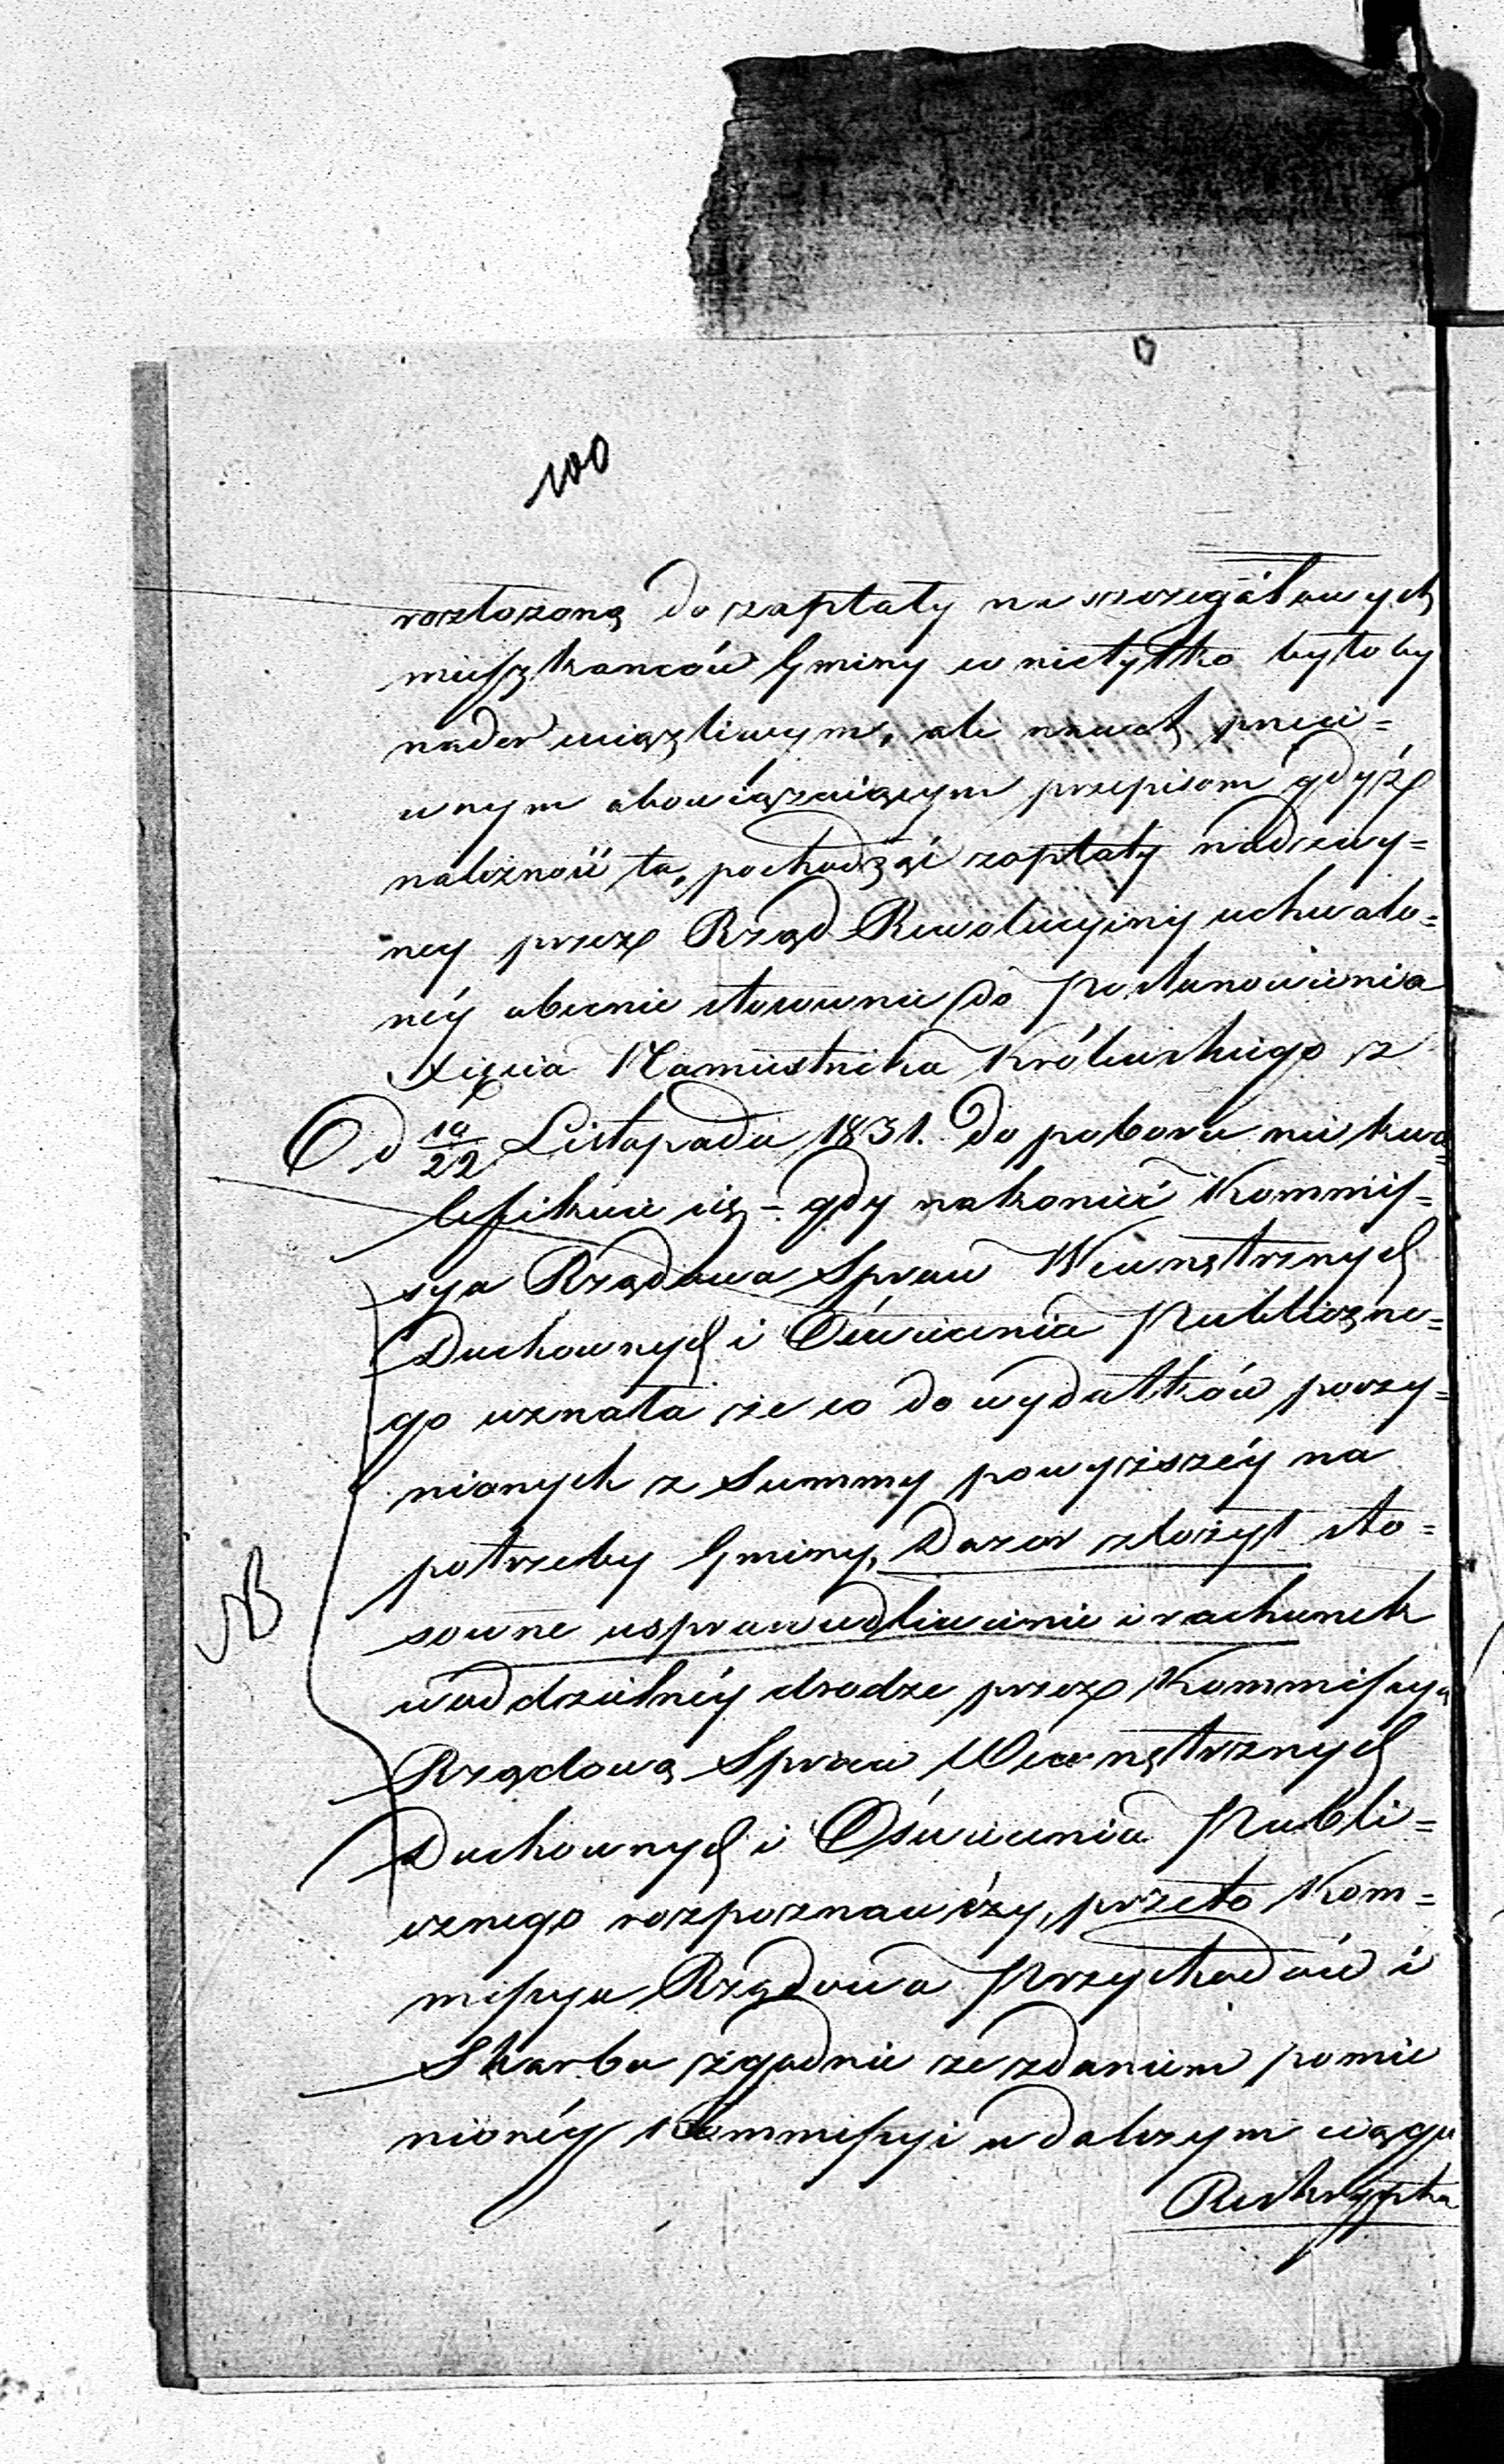 100
rozłożoną do zapłaty na szczegółowych
mieszkanców Gminy co nietylko byłoby
nader uciążliwym, ale nawet przeci=
wnym obowiązuiącym przepisom gdyż
należność ta, pochodząc z opłaty nadzwy=
ney przez Rząd Rewolucyiny uchwalo=
néy obecnie stosownie do Postanowienia
Xięcia Namiestnika Królewskiego z
d 10/22 Listopada 1831. do poboru nie kwa=
lifikuie się – gdy nakoniec Kommis=
sya Rządowa Spraw Wewnętrznych
Duchownych i Oświecenia Publiczne=
go uznała że co do wydatków poczy=
nionych z Summy powyższéy na
potrzeby Gminy, Dozor złożył sto=
sowne usprawiedliwienie i rachunek
w oddzielnéy drodze przez Kommissyą
NB
Rządową Spraw Wewnętrznych
Duchownych i Oświecenia Publi=
cznego rozpoznawczy, przeto Kom=
missya Rządowa Przychodów i
Skarbu zgodnie ze zdaniem pomie
nionéy Kommissyi w dalszym ciągu
Reskryptu